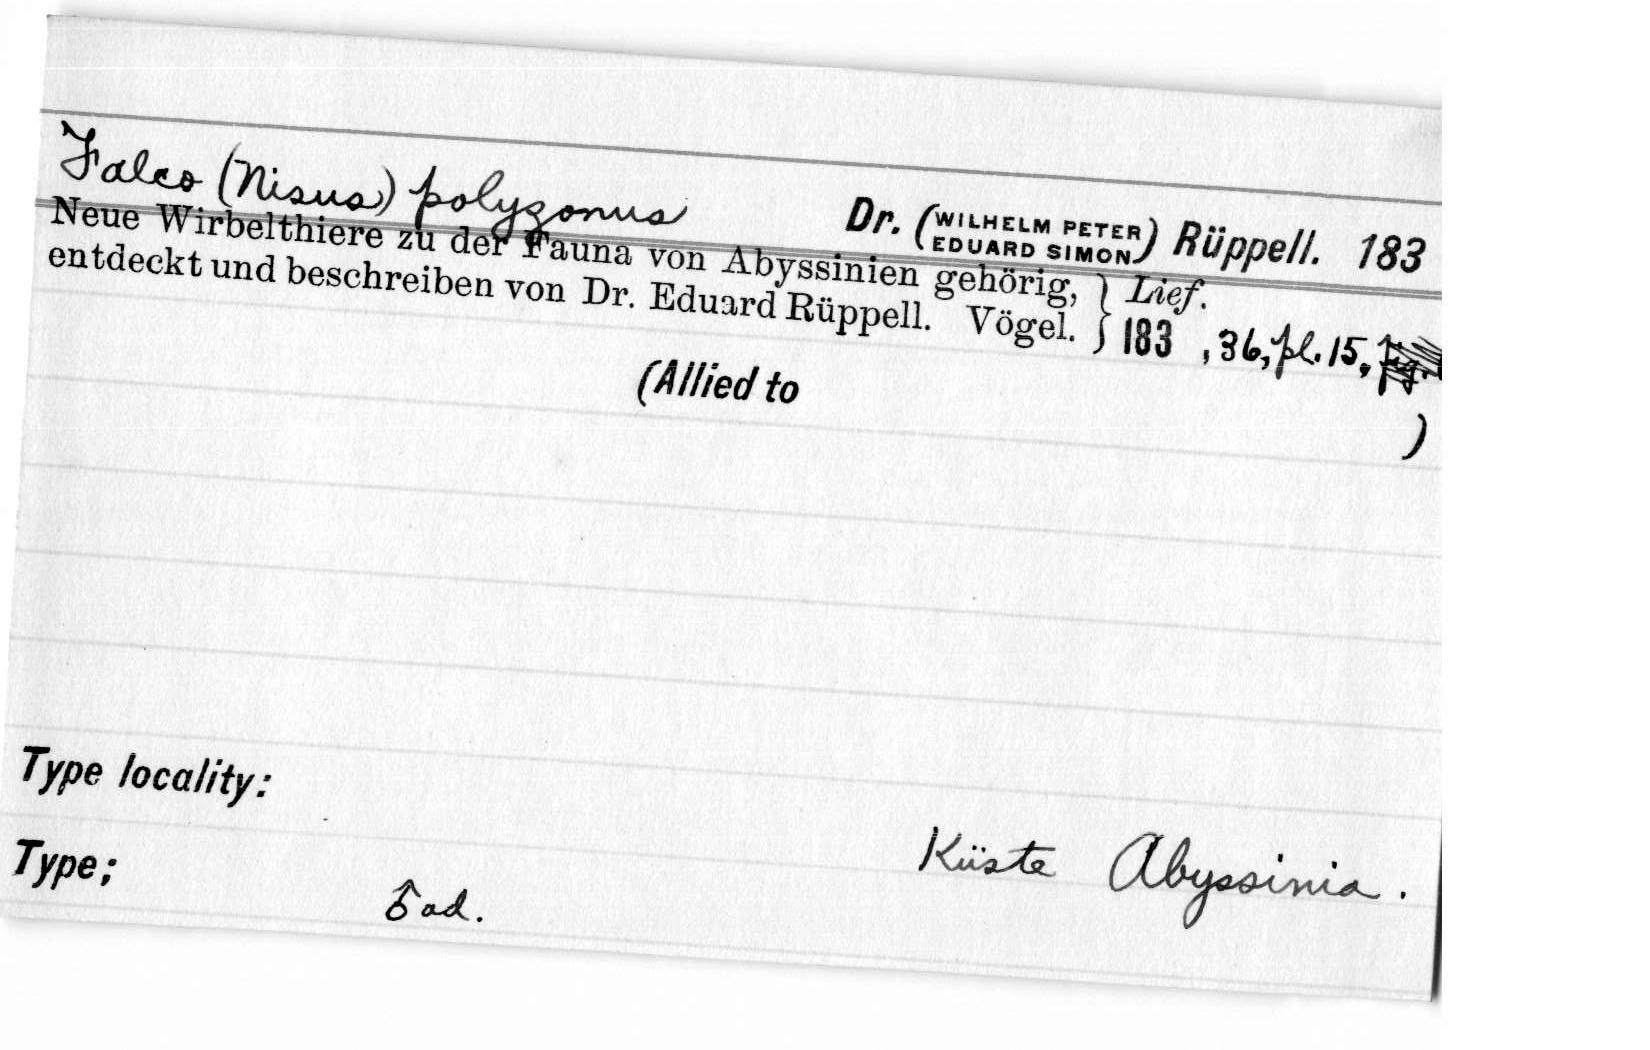 Falco (Nisus) polyzonus
Dr. (WILHELM PETER EDUARD SIMON) Rüppell. 183
Neue Wirbelthiere zu der Fauna von Abyssinien gehörig, } Lief.
entdeckt und beschreiben von Dr. Eduard Rüppell. Vögel. } 183 , 36, pl. 15,
(Allied to
)
Type locality:
Küste Abyssinia.
Type;
♂ ad.